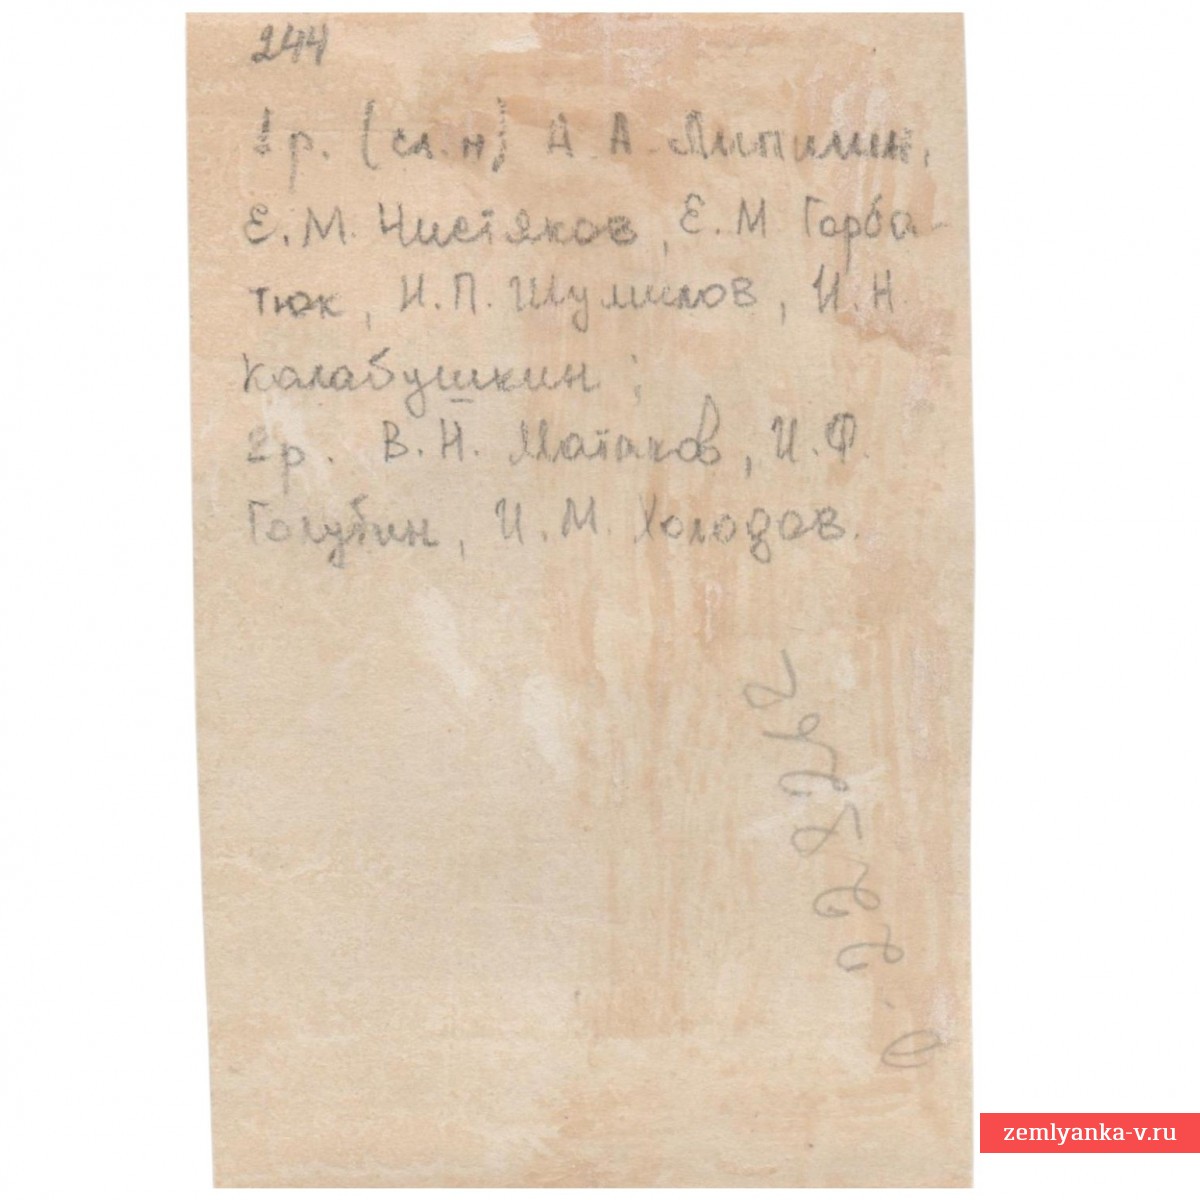 244
1 р. (сл. н) А. А. Липилин,
Е. М. Чистяков, Е. М Горба-
тюк, И. П. Шумилов, И. Н.
Калабушкин;
2 р. В. Н. Матаков, И. Ф.
Голубин, И. М. Холодов.
zemlyanka-v.ru